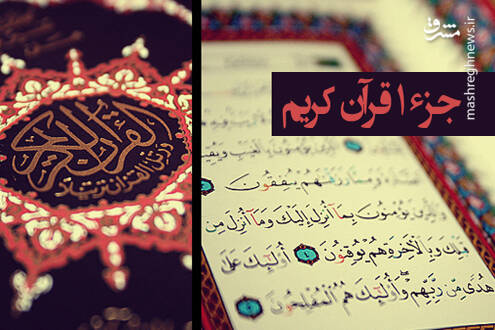 مشرق
mashreghnews.ir
جزء ۱ قرآن کریم
القرآن الكريم
ورتل القرآن ترتيلا
يُؤْمِنُونَ بِالْغَيْبِ وَ
رَزَقْنَاهُمْ يُنْفِقُونَ
وَالَّذِينَ يُؤْمِنُونَ بِمَا أُنْزِلَ إِلَيْكَ وَمَا أُنْزِلَ مِنْ
قَبْلِكَ وَبِالْآخِرَةِ هُمْ يُوقِنُونَ ٤ أُولَٰئِكَ عَلَىٰ
هُدًى مِنْ رَبِّهِمْ وَأُولَٰئِكَ هُمُ الْمُفْلِحُونَ ٥